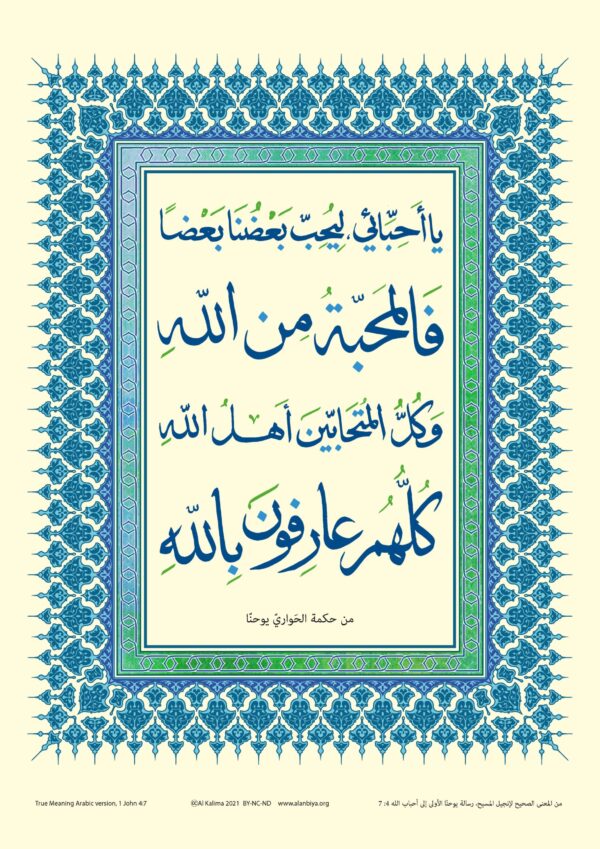 يا أَحِبّائي، لِيُحِبّ بَعْضُنَا بَعْضًا
فَالمَحَبّةُ مِن اللّهِ
وَكُلُّ المُتَحَابّينَ أَهلُ اللّهِ
كُلُّهُم عارِفونَ بِاللّهِ
من حكمة الحَواريّ يوحنّا
True Meaning Arabic version, 1 John 4:7 🅭Al Kalima 2021 BY-NC-ND www.alanbiya.org من المعنى الصحيح لإنجيل المسيح، رسالة يوحنّا الأولى إلى أحباب الله 4: 7